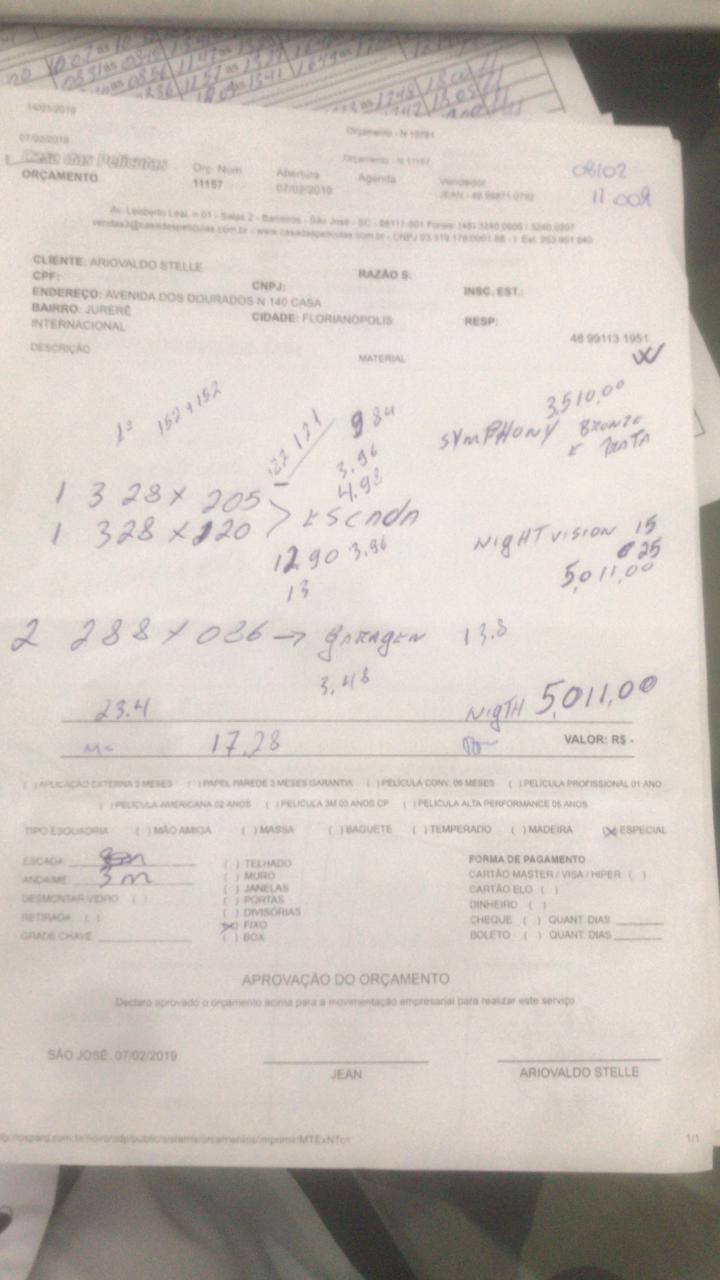 14/01/2019
Orçamento - N 10781
07/02/2019
Orçamento - N 11157
08/02
Casa das Películas
ORÇAMENTO
Orç. Num
11157
Abertura
07/02/2019
Agenda
Vendedor
JEAN - 48 99871 0792
Av. Leoberto Leal, n 01 - Salas 2 - Barreiros - São José - SC - 88117-001 Fones: (48) 3240 0606 / 3240 0207
vendas3@casadaspeliculas.com.br - www.casadaspeliculas.com.br - CNPJ
CLIENTE: ARIOVALDO STELLE
RAZÃO S:
CPF:
CNPJ:
INSC. EST.:
ENDEREÇO: AVENIDA DOS DOURADOS N 140 CASA
BAIRRO: JURERÊ INTERNACIONAL
CIDADE: FLORIANÓPOLIS
RESP:
48 99113 1951
DESCRIÇÃO
MATERIAL
1ª 152 + 152
3.510,00
SYMPHONY BRONZE
E PRATA
122 121
9 84
3.96
4.98
1 3 28 x 205
1 328 x 120 > ESCADA
12.90 3.96
13
NIGHT VISION 15
25
5,011,00
2 288 x 086 → GARAGEN 13.8
3.48
23.4
NIGTH 5,011,00
17,28
VALOR: R$ -
( ) APLICAÇÃO EXTERNA 3 MESES ( ) PAPEL PAREDE 3 MESES GARANTIA ( ) PELÍCULA CONV. 06 MESES ( ) PELÍCULA PROFISSIONAL 01 ANO
( ) PELÍCULA AMERICANA 02 ANOS ( ) PELICULA 3M 03 ANOS CP ( ) PELÍCULA ALTA PERFORMANCE 05 ANOS
TIPO ESQUADRIA ( ) MÃO AMIGA ( ) MASSA ( ) BAGUETE ( ) TEMPERADO ( ) MADEIRA (X) ESPECIAL
ESCADA
ANDAIME 3 m
DESMONTAR VIDRO ( )
RETIRADA ( )
GRADE CHAVE
( ) TELHADO
( ) MURO
( ) JANELAS
( ) PORTAS
( ) DIVISÓRIAS
(X) FIXO
( ) BOX
FORMA DE PAGAMENTO
CARTÃO MASTER / VISA / HIPER ( )
CARTÃO ELO ( )
DINHEIRO ( )
CHEQUE ( ) QUANT DIAS
BOLETO ( ) QUANT DIAS
APROVAÇÃO DO ORÇAMENTO
Declaro aprovado o orçamento acima para a movimentação empresarial para realizar este serviço
SÃO JOSÉ, 07/02/2019
JEAN
ARIOVALDO STELLE
1/1